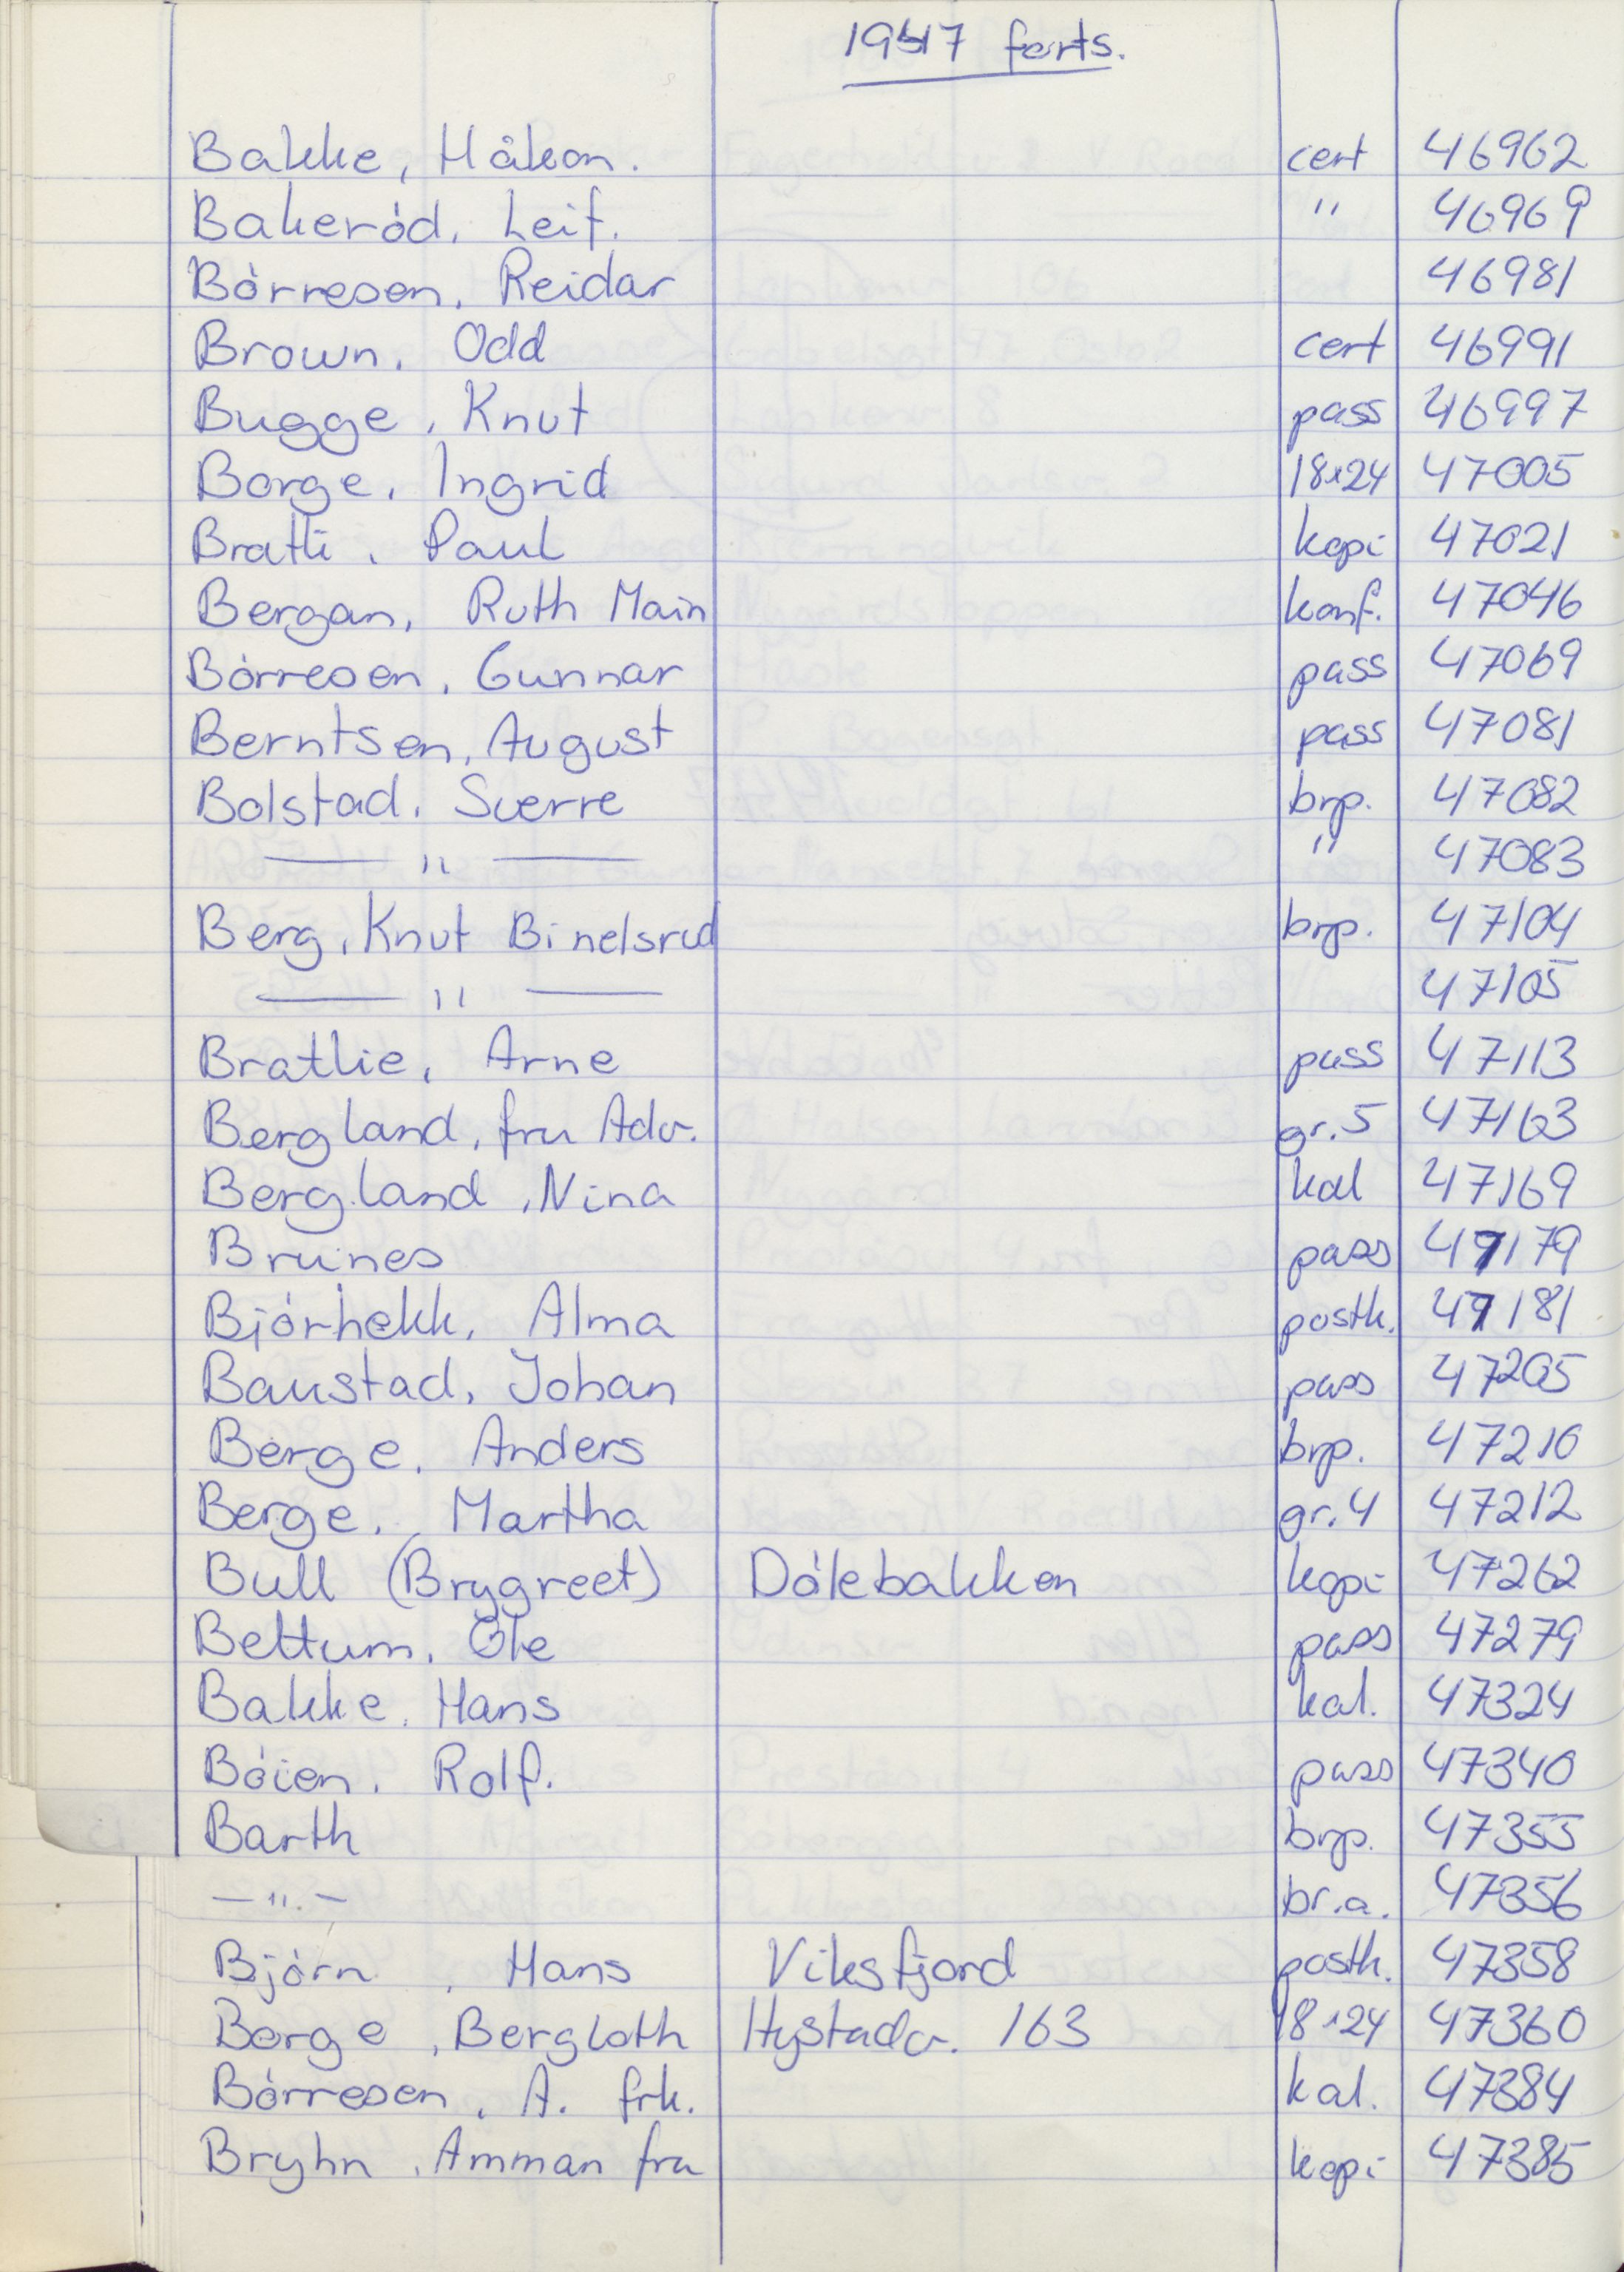 1947 forts.
Bakke, Håkon. cert 46962
Bakeród, Leif. " 46969
Börresen, Reidar 46981
Brown, Odd cert 46991
Bugge, Knut pass 46997
Borge, Ingrid 18x24 47005
Bratli, Paul kopi 47021
Bergan, Ruth Main konf. 47046
Börresen, Gunnar pass 47069
Berntsen, August pass 47081
Bolstad, Sverre brp. 47082
— " — " 47083
Berg, Knut Binelsrud brp. 47104
— " — 47105
Bratlie, Arne pass 47113
Bergland, fru Adv. gr.5 47163
Bergland, Nina kal 47169
Brunes pass 47179
Björhekk, Alma postk. 47181
Baustad, Johan pass 47205
Berge, Anders brp. 47210
Berge, Martha gr.4 47212
Bull (Brygreet) Dölebakken kopi 47262
Bettum, Ole pass 47279
Bakke, Hans kal. 47324
Böien, Rolf. pass 47340
Barth brp. 47355
— " — br.a. 47356
Björn, Hans Viksfjord postk. 47358
Borge, Bergloth Hystadv. 163 18x24 47360
Börresen, A. frk. kal. 47384
Bryhn, Amman fru kopi 47385